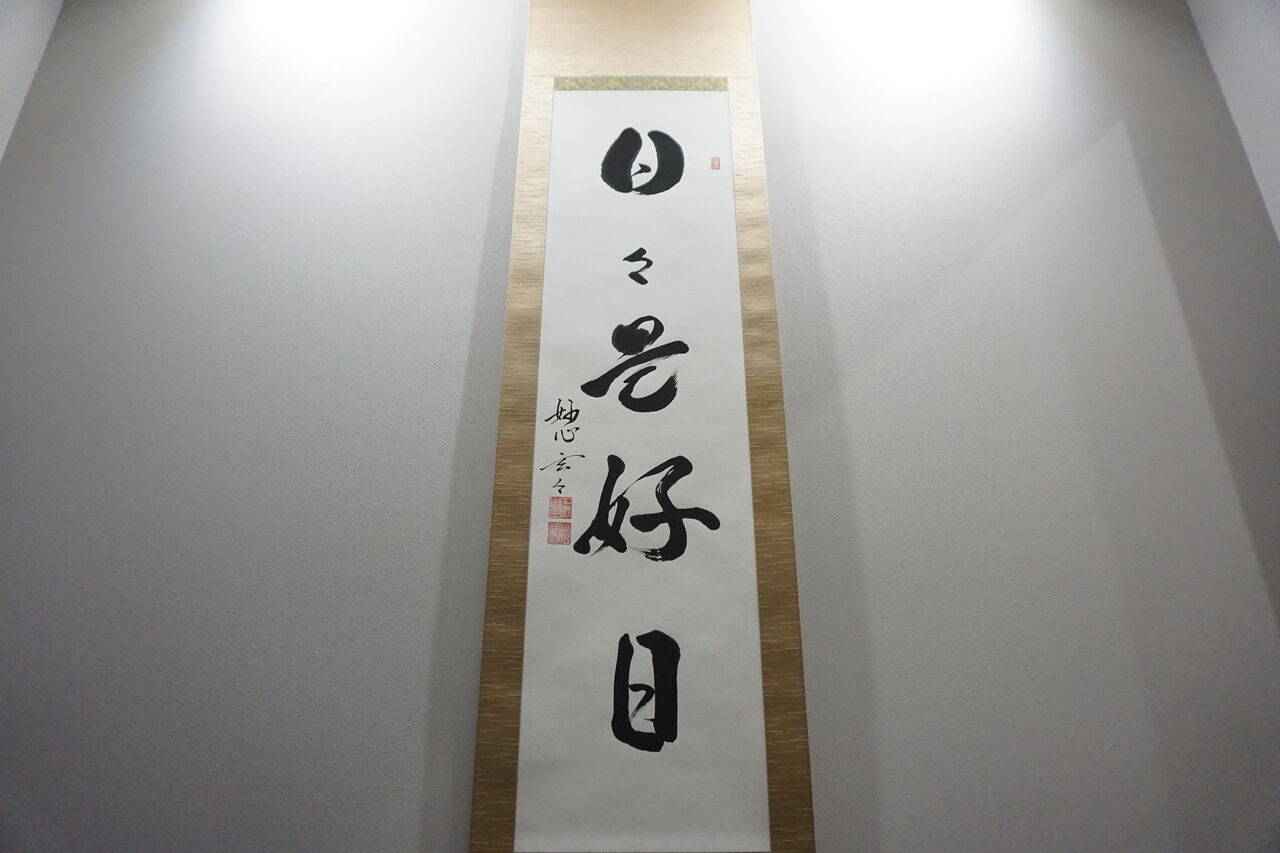 日々是好日
妙心玄々